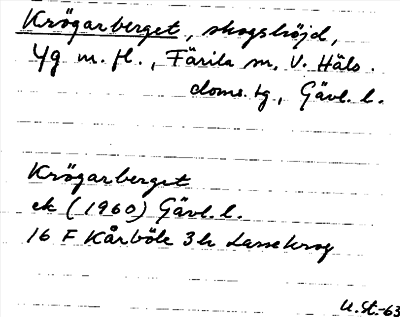 Krögarberget, skogshöjd,
Yg m. fl., Färila sn, V. Häls.
doms. tg, Gävl. l.
Krögarberget
ek (1960) Gävl. l.
16 F Kårböle 3h Lassekrog
U.St.-63